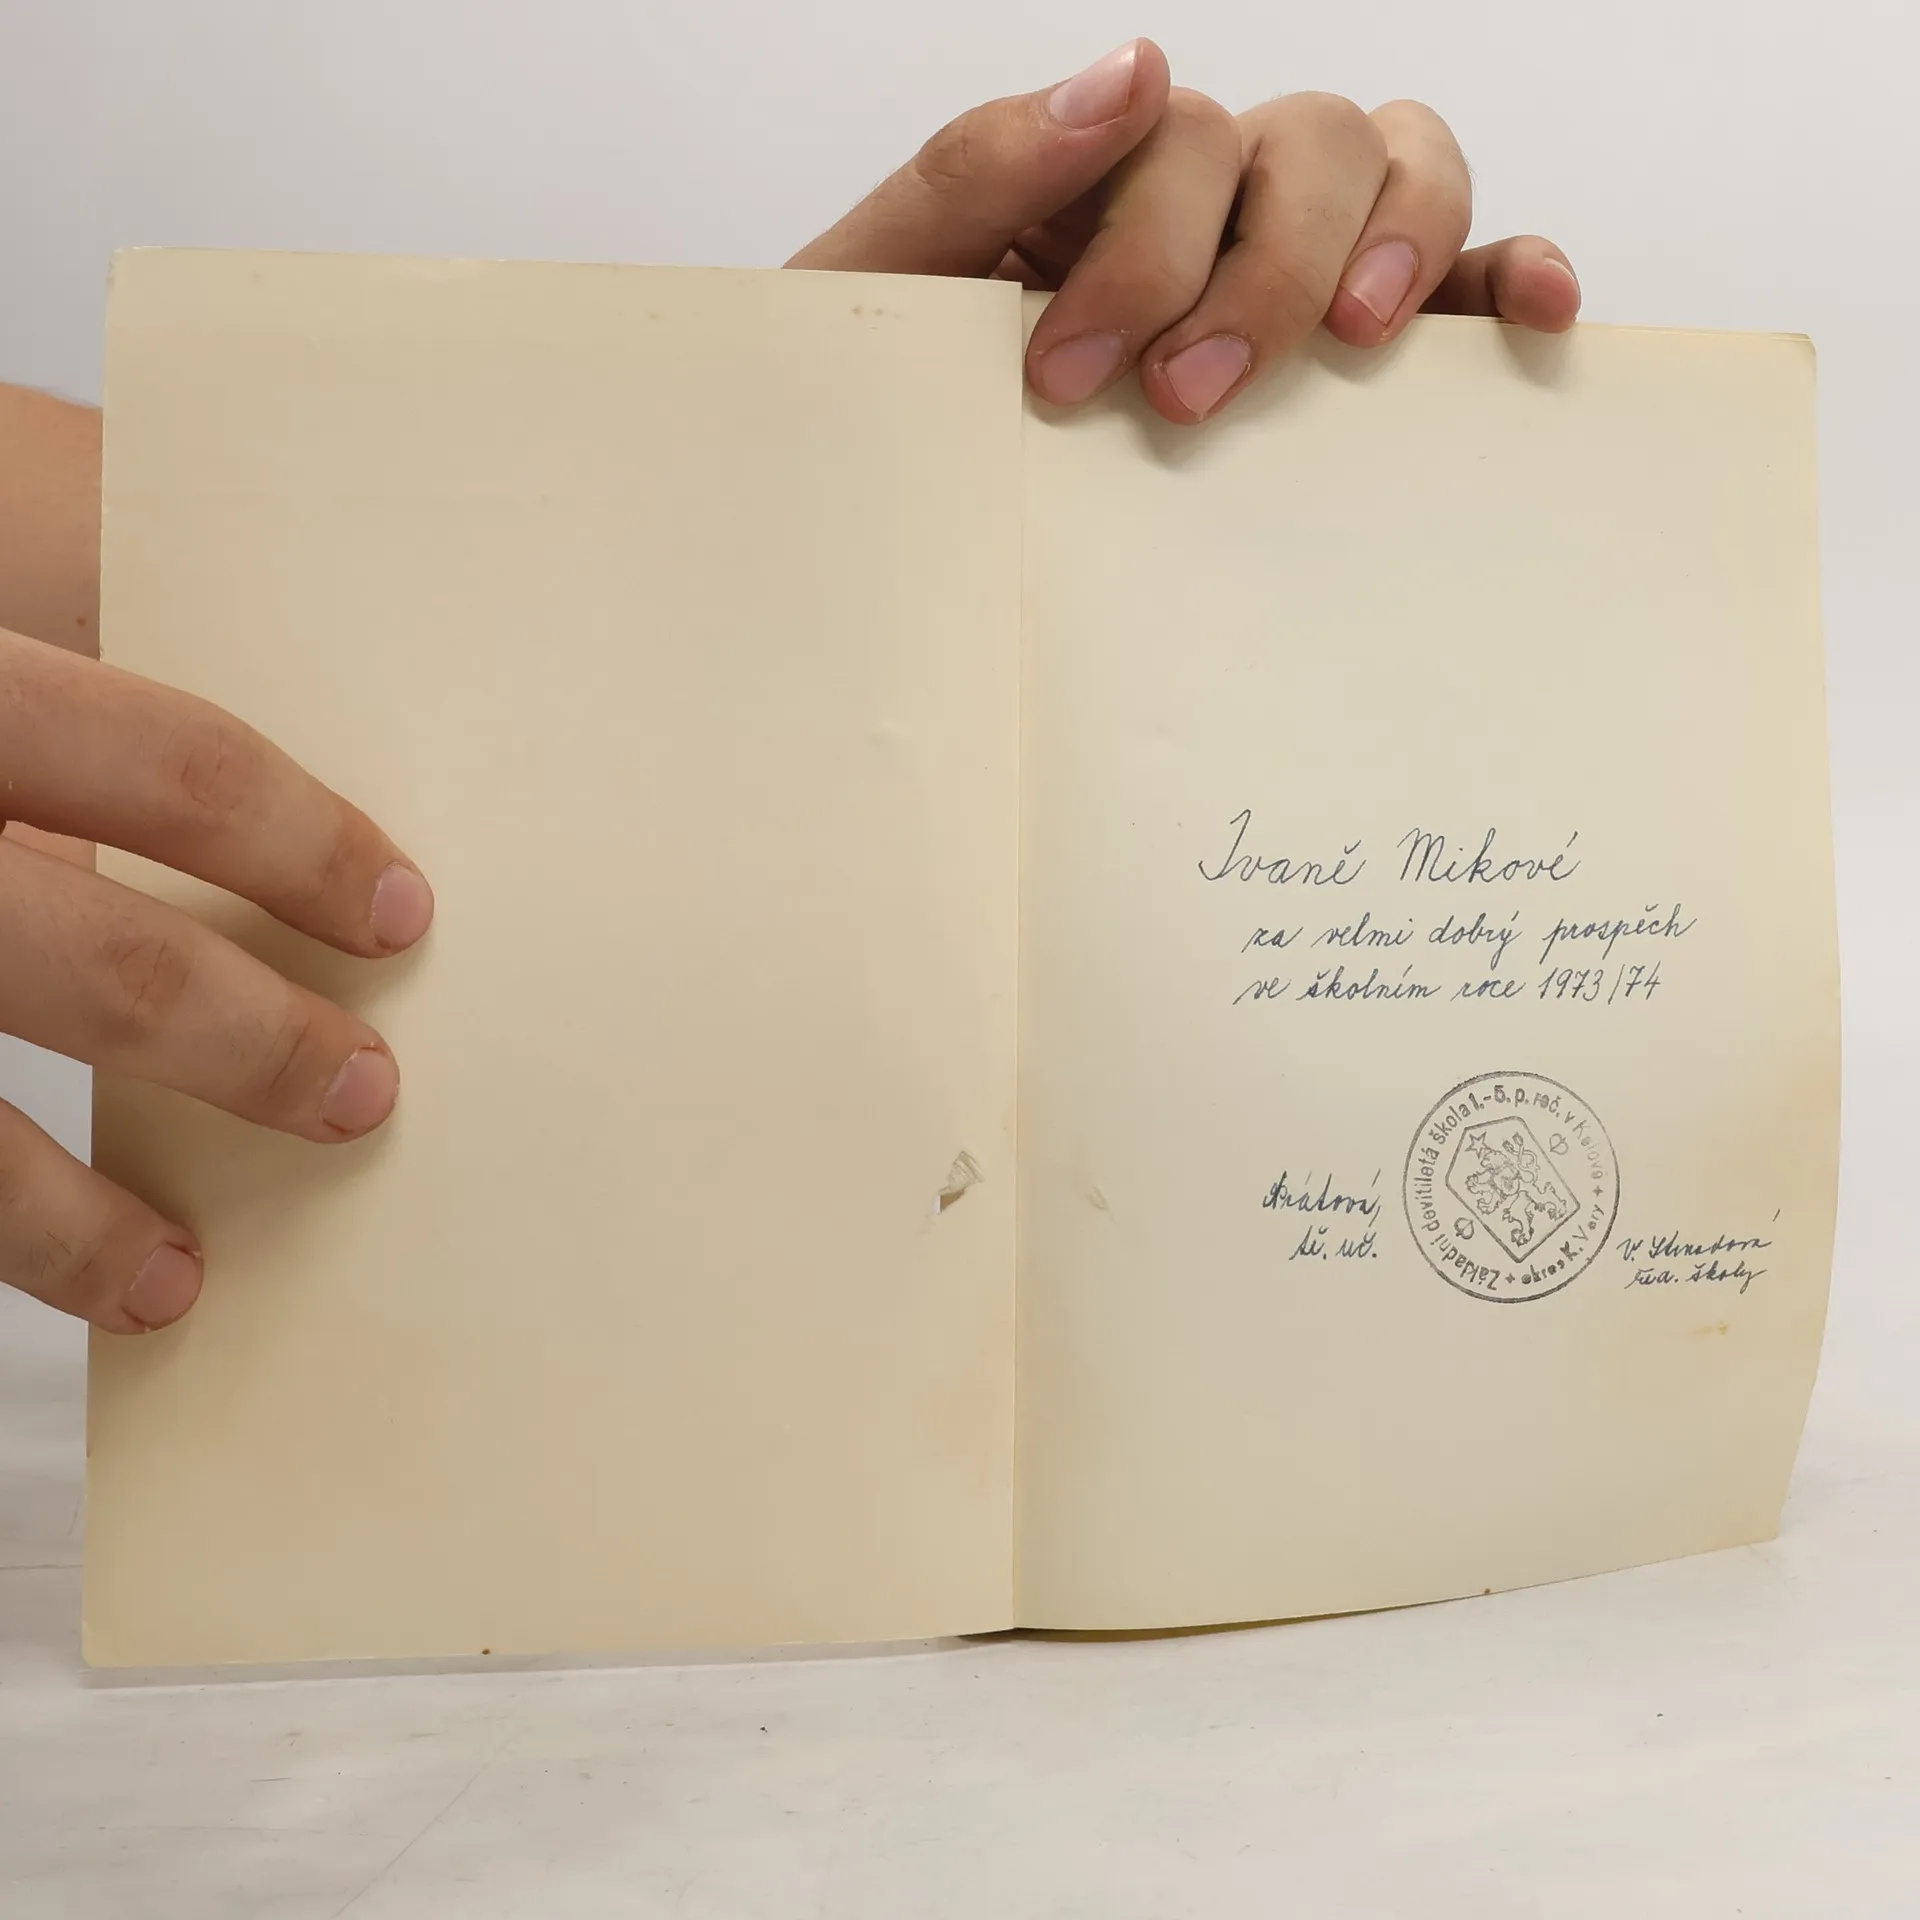 Ivaně Mikové
za velmi dobrý prospěch
ve školním roce 1973/74
Základní devítiletá škola 1.-5. p. roč. v + okres K. Vary +
tř. uč.
V.
řed. školy